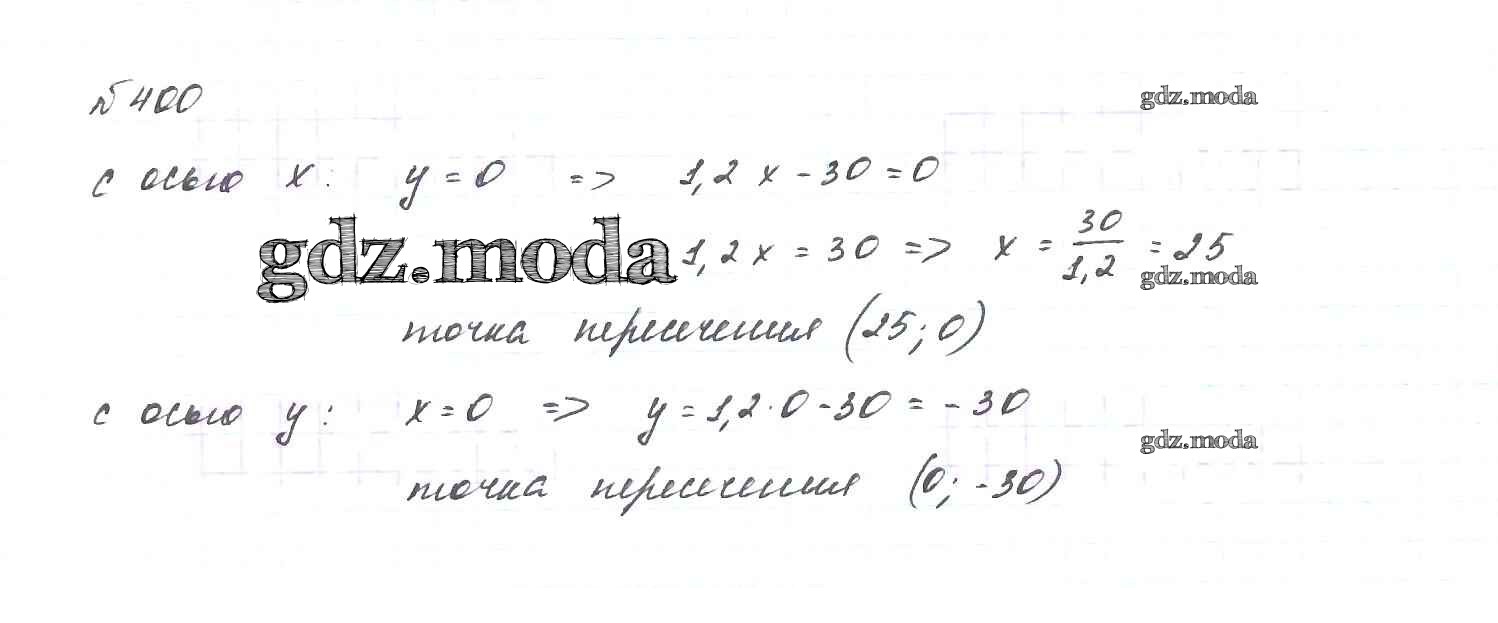 № 400
gdz.moda
с осью x: y = 0 => 1,2 x - 30 = 0
gdz.moda 1,2 x = 30 => x = 30/1,2 = 25
gdz.moda
точка пересечения (25; 0)
с осью y: x = 0 => y = 1,2 · 0 - 30 = - 30
gdz.moda
точка пересечения (0; -30)